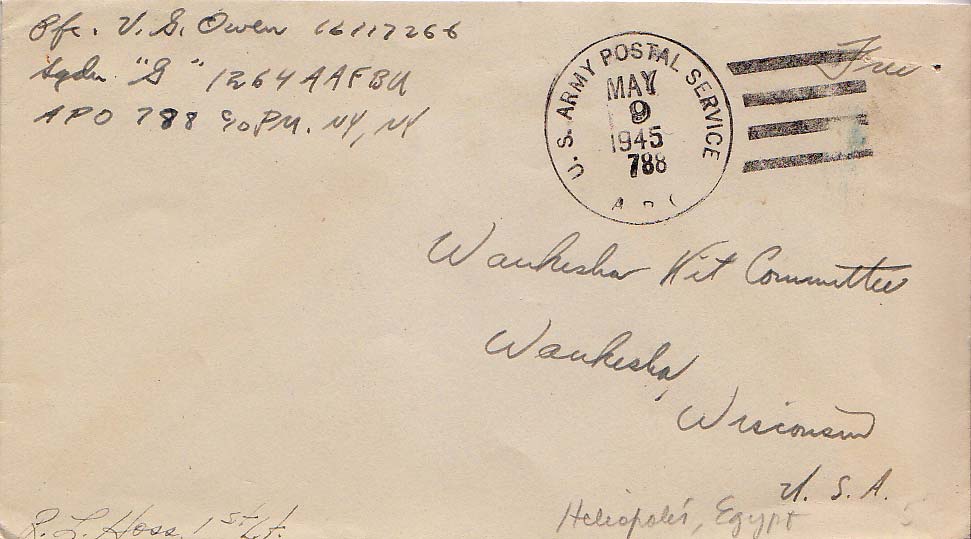 Pfc. V. G. Owen 16117266
Sqdn "G" 1264 AAFBU
APO 788 % PM. NY, NY
U. S. ARMY POSTAL SERVICE
MAY
9
1945
788
A. P. O.
Free.
Waukesha Kit Committee
Waukesha,
Wisconsin
U. S. A.
Heliopolis, Egypt
R. L. Hoss, 1st Lt.